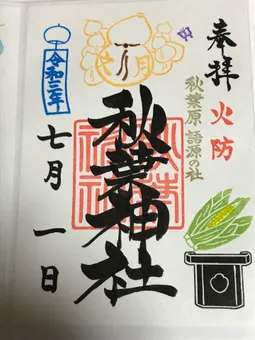 奉拝
火防
秋葉原 語源の社
秋葉神社
令和三年
七月 一日